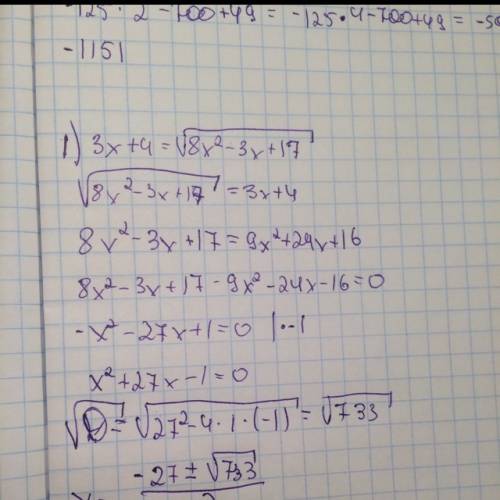 -125·2-700+49= -125·4-700+49=
-1151
1) 3x+4=√(8x²-3x+17)
√(8x²-3x+17)=3x+4
8x²-3x+17=9x²+24x+16
8x²-3x+17-9x²-24x-16=0
-x²-27x+1=0 |·-1
x²+27x-1=0
√D=√(27²-4·1·(-1))=√733
-27±√733